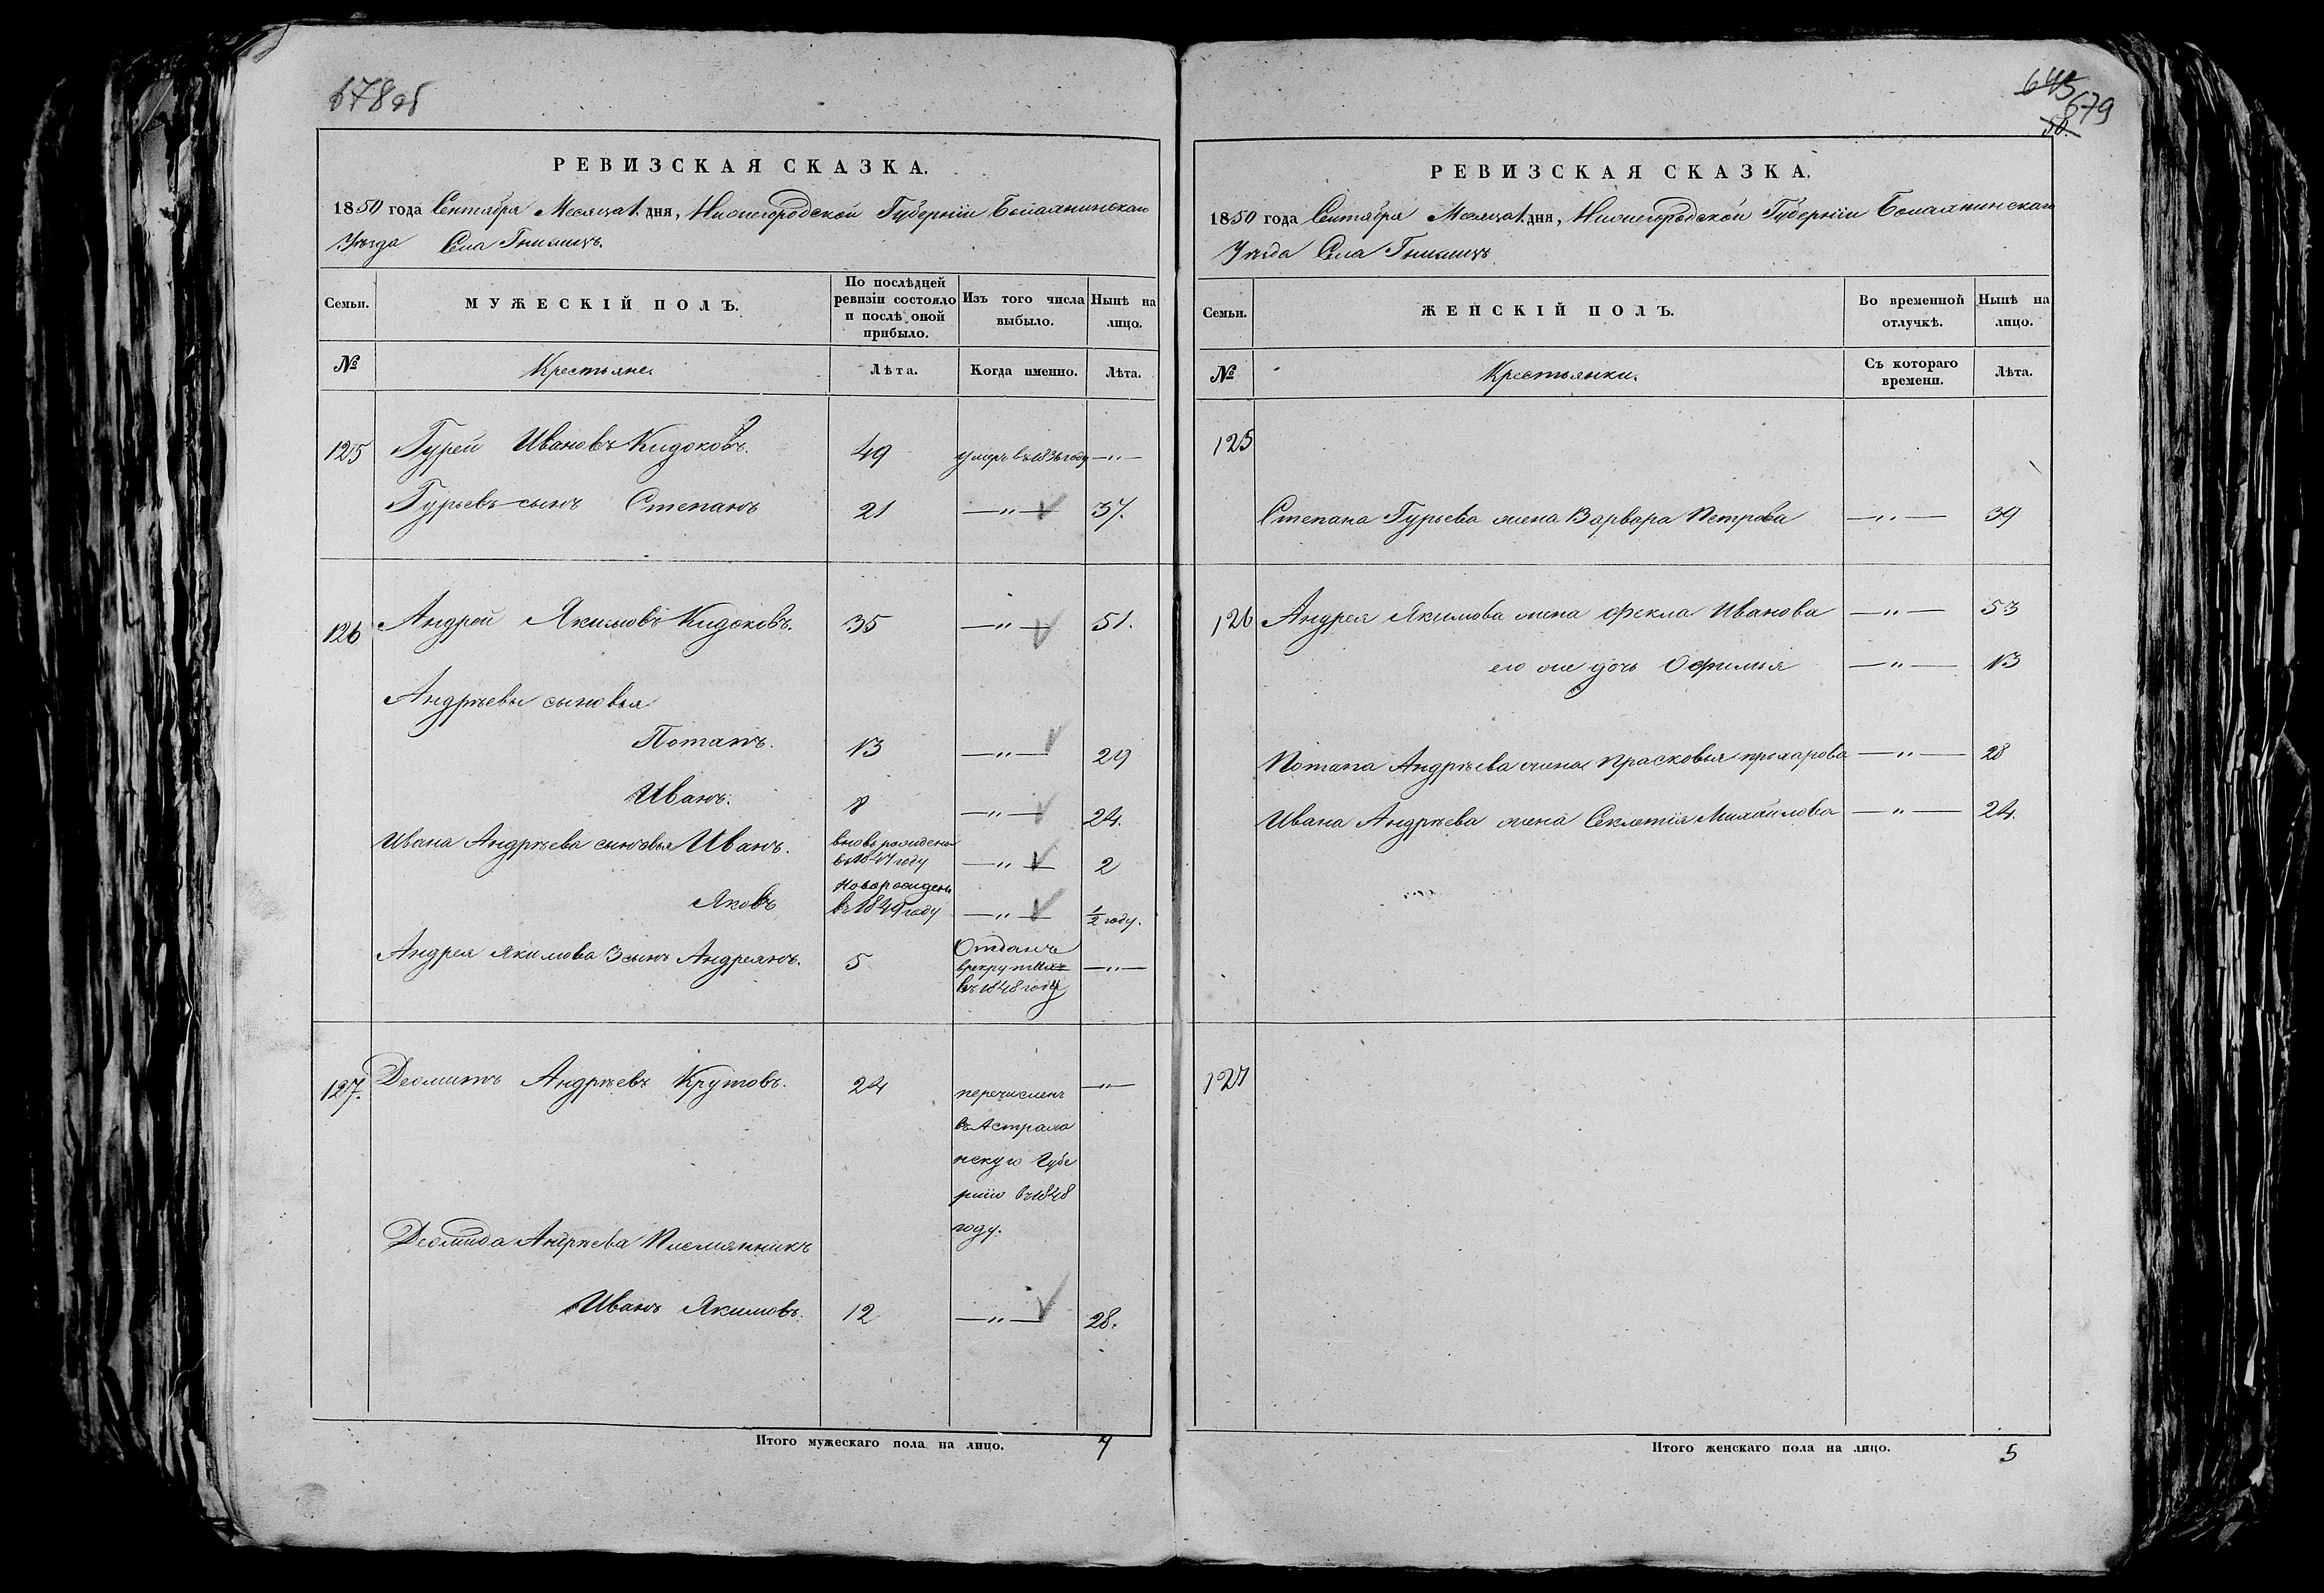 678 об
РЕВИЗСКАЯ СКАЗКА.
1850 года Сентября Месяца 1. дня, Нижегородской Губернiи Балахнинскаго
Уѣзда Села Гнилицъ.
Семьи.
МУЖЕСКІЙ ПОЛЪ.
По послѣдней ревизіи состояло и послѣ оной прибыло.
Изъ того числа выбыло.
Нынѣ на лицо.
№
Крестьяне.
Лѣта.
Когда именно.
Лѣта.
125 Гурей Ивановъ Кидоковъ. 49 умеръ въ 1836 году —"—
Гурьевъ сынъ Степанъ 21 —"— 37.
126 Андрей Якимовъ Кидоковъ. 35 —"— 51.
Андрѣевы сыновья
Потапъ. 13 —"— 29
Иванъ. 8 —"— 24.
Ивана Андрѣева сыновья Иванъ. вновь рожденъ въ 1847 году —"— 2
Яковъ новорожденъ въ 1849 году —"— ½ году.
Андрея Якимова 3 сынъ Андреянъ. 5 Отданъ в рекруты въ 1848 году —"—
127. Деомидъ Андрѣевъ Крутовъ. 24 перечисленъ —"—
въ Астраха
нскую Губе
рнію въ 1848
году.
Деомида Андрѣева Племянникъ
Иванъ Якимовъ. 12 —"— 28.
Итого мужескаго пола на лицо. 7
645
679
50.
РЕВИЗСКАЯ СКАЗКА.
1850 года Сентября Месяца 1. дня, Нижегородской Губернiи Балахнинскаго
Уѣзда Села Гнилицъ
Семьи.
ЖЕНСКІЙ ПОЛЪ.
Во временной отлучкѣ.
Нынѣ на лицо.
№
Крестьянки.
Съ котораго времени.
Лѣта.
125
Степана Гурьева жена Варвара Петрова —"— 39
126 Андрея Якимова жена Фекла Иванова —"— 53
его же дочь Офимья —"— 13
Потапа Андрѣева жена Прасковья Прохарова —"— 28
Ивана Андрѣева жена Секлетія Михайлова —"— 24.
127
Итого женскаго пола на лицо. 5